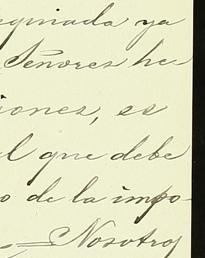 eginada ya
Señores he
iones, es
l que debe
o de la impo-
Nosotros